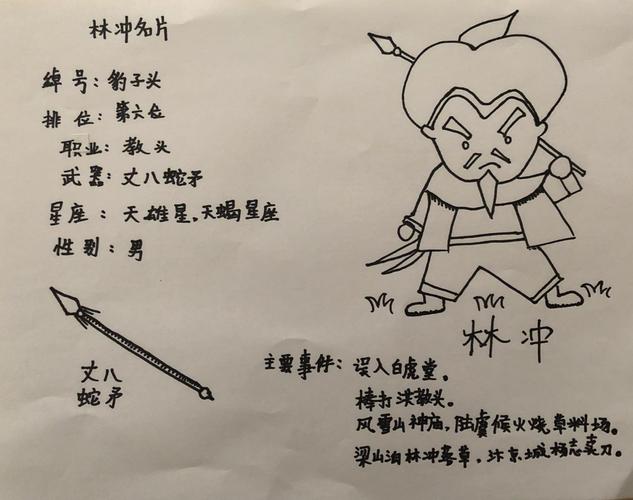 林冲名片
绰号：豹子头
排位：第六位
职业：教头
武器：丈八蛇矛
星座：天雄星，天蝎星座
性别：男
丈八
蛇矛
林冲
主要事件：误入白虎堂。
棒打洪教头。
风雪山神庙，陆虞候火烧草料场。
梁山泊林冲落草，汴京城杨志卖刀。